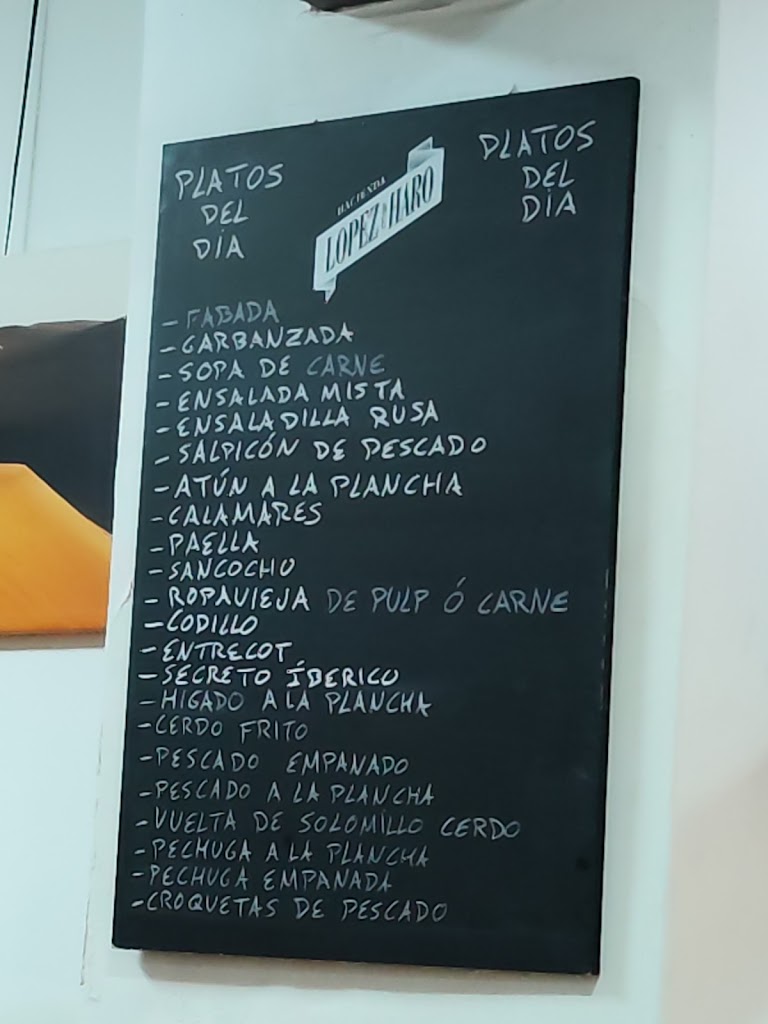 PLATOS
DEL
DIA
HACIENDA
LOPEZ DE HARO
PLATOS
DEL
DIA
- FABADA
- GARBANZADA
- SOPA DE CARNE
- ENSALADA MISTA
- ENSALADILLA RUSA
- SALPICÓN DE PESCADO
- ATÚN A LA PLANCHA
- CALAMARES
- PAELLA
- SANCOCHO
- ROPAVIEJA DE PULP Ó CARNE
- CODILLO
- ENTRECOT
- SECRETO ÍBERICO
- HIGADO A LA PLANCHA
- CERDO FRITO
- PESCADO EMPANADO
- PESCADO A LA PLANCHA
- VUELTA DE SOLOMILLO CERDO
- PECHUGA A LA PLANCHA
- PECHUGA EMPANADA
- CROQUETAS DE PESCADO